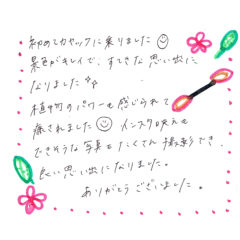 初めてカヤックに乗りました
景色がキレイで、すてきな思い出に
なりました
植物のパワーも感じられて
癒されました インスタ映えも
できそうな写真もたくさん撮影でき、
良い思い出になりました。
ありがとうございました。